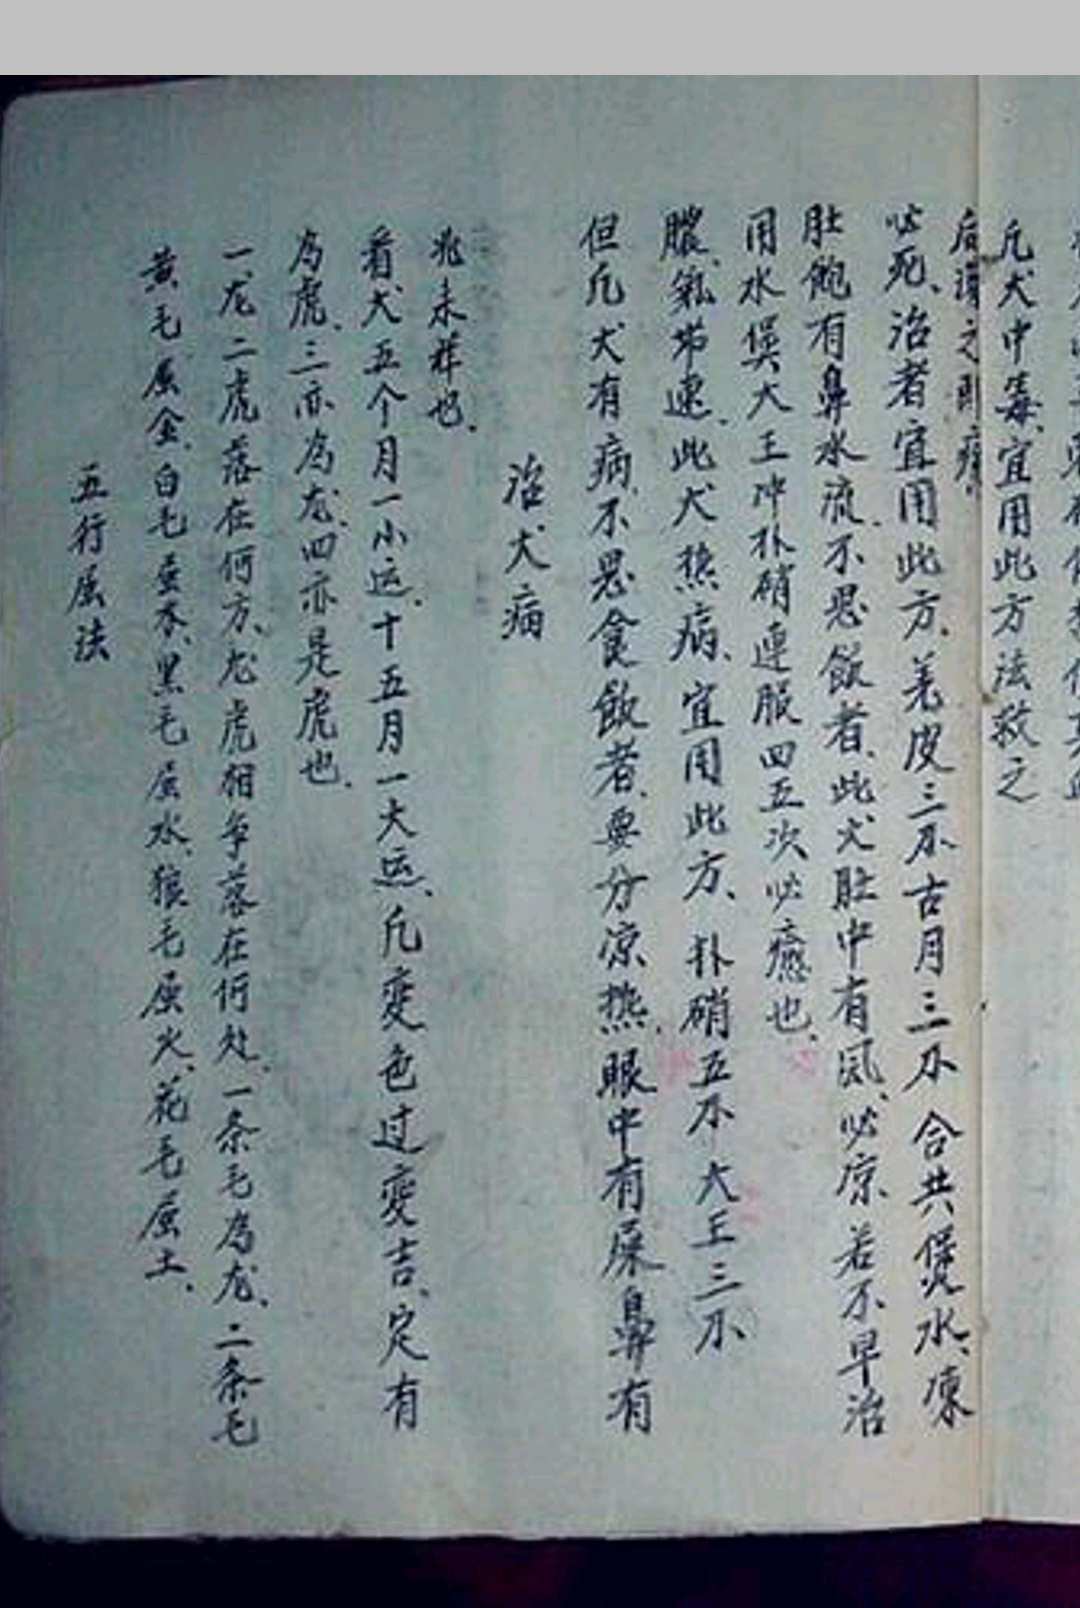 五行属法
黄毛属金、白毛属木、黑毛属水、狼毛属火、花毛属土、
一龙二虎落在何方、龙虎相争落在何处、一条毛为龙、二条毛
为虎、三亦为龙、四亦是虎也、
看犬五个月一小运、十五月一大运、凡变色过变吉、定有
兆未祥也、
治犬病
但凡犬有病、不思食飲者、要分凉热、眼中有屎鼻有
膿、氣常速、此犬热病、宜用此方、朴硝五不大王三不、
用水煲大王冲朴硝連服四五次必癒也、
肚飽有鼻水流、不思飯者、此犬肚中有风、必凉、若不早治
必死、治者宜用此方、羌皮三不古月三不合共煲水、凍
后灌之即痊
凡犬中毒、宜用此方法救之